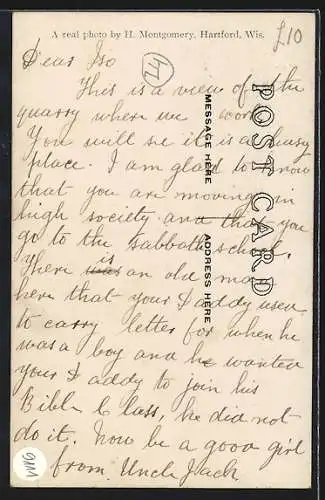 A real photo by H. Montgomery, Hartford, Wis.
£10
14
Dear Iso
This is a view of the
quarry where we work
You will see it is a busy
place. I am glad to know
that you are moving in
high society and that you
go to the sabbath school.
There was is an old man
here that your Daddy used
to carry letter for when he
was a boy and he wanted
your Daddy to join his
Bible Class, he did not
do it. Now be a good girl
from Uncle Jack
POST CARD
MESSAGE HERE
ADDRESS HERE